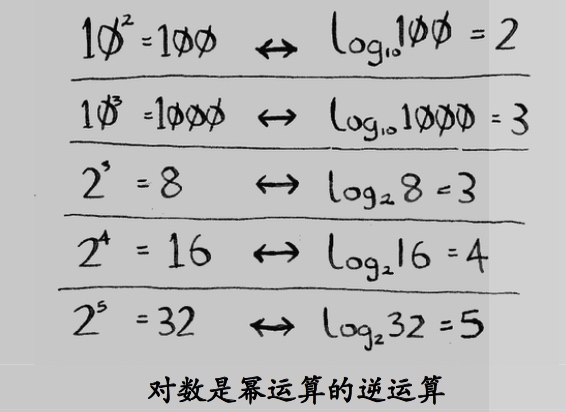 10² = 100 ↔ log₁₀100 = 2
10³ = 1000 ↔ log₁₀1000 = 3
2³ = 8 ↔ log₂8 = 3
2⁴ = 16 ↔ log₂16 = 4
2⁵ = 32 ↔ log₂32 = 5
对数是幂运算的逆运算